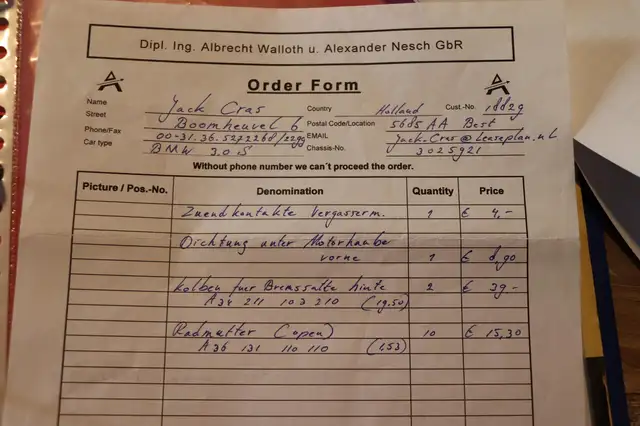 Dipl. Ing. Albrecht Walloth u. Alexander Nesch GbR
Order Form
Name Jack Cras Country Holland Cust.-No. 18829
Street Boomheuvel 6 Postal Code/Location 5685 AA Best
Phone/Fax 00-31.36.5272268/2299 EMAIL Jack.Cras@Leaseplan.nl
Car type BMW 3.0 S Chassis-No. 3025921
Without phone number we can´t proceed the order.
Picture / Pos.-No. Denomination Quantity Price
Zuendkontakte Vergasserm. 1 € 4,-
Dichtung unter Motorhaube
vorne 1 € 8,90
Kolben fuer Bremssatte hinte 2 € 39.-
A 34 211 103 210 (19.50)
Radmutter (open) 10 € 15,30
A 36 131 110 110 (1,53)